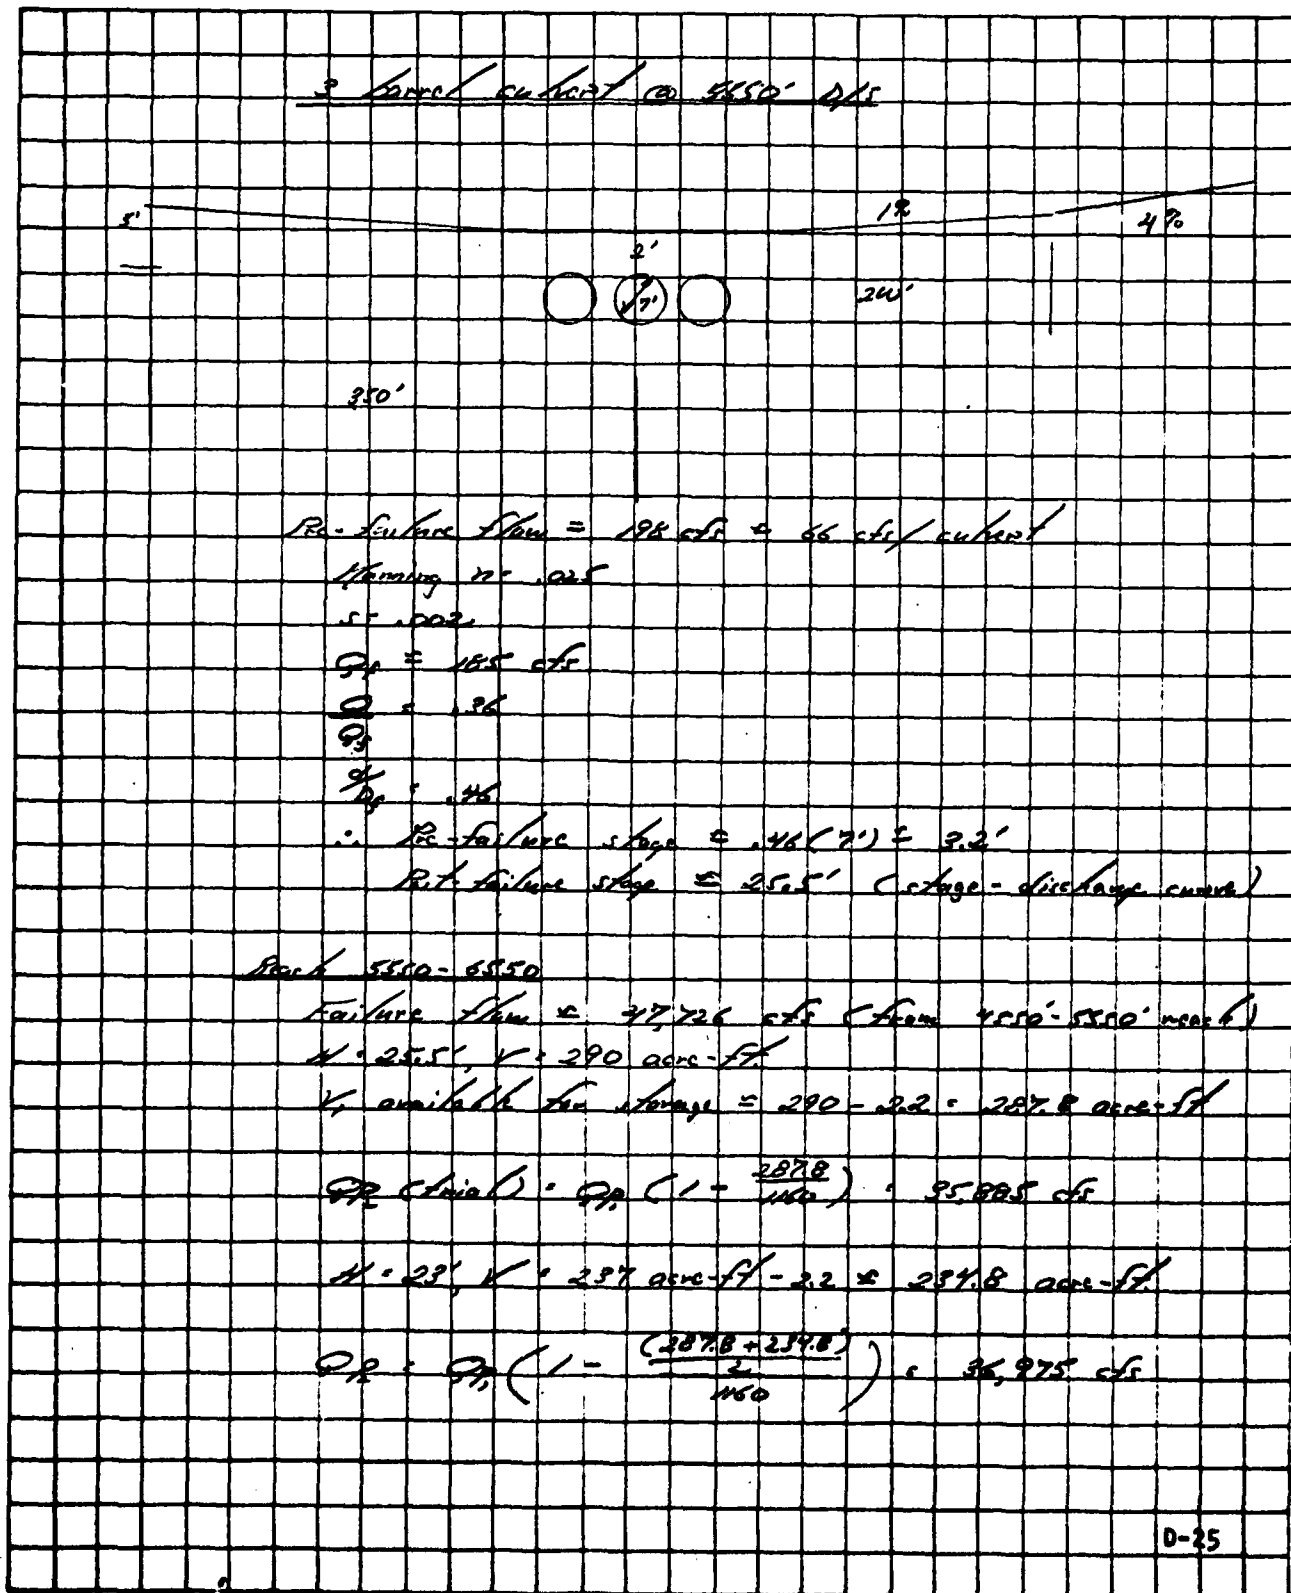 3 barrel culvert @ 5650' D/S
5'
1%
4%
2'
7'
200'
350'
Pre-failure flow = 198 cfs = 66 cfs/culvert
Manning n= .025
s= .002
Qf = 185 cfs
Q/Qf = .36
d/Df = .46
∴ Pre-failure stage = .46(7') = 3.2'
Post-failure stage = 25.5' (stage-discharge curve)
Reach 5550-6550
Failure flow = 47,726 cfs (from 4550'-5550' reach)
H = 25.5', V = 290 acre-ft.
V1 available for storage = 290 - 2.2 = 287.8 acre-ft
QP2 (trial) = QP1 (1 - 287.8/1160) = 35,885 cfs
H = 23', V = 237 acre-ft - 2.2 = 234.8 acre-ft.
QP2 = QP1 (1 - ((287.8 + 234.8)/2)/1160) = 36,975 cfs
D-25